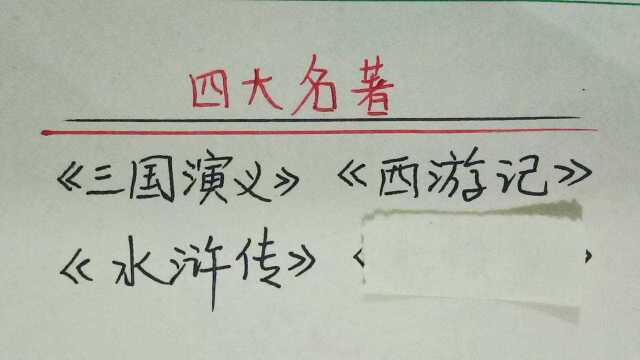 四大名著
《三国演义》 《西游记》
《水浒传》 〈 〉